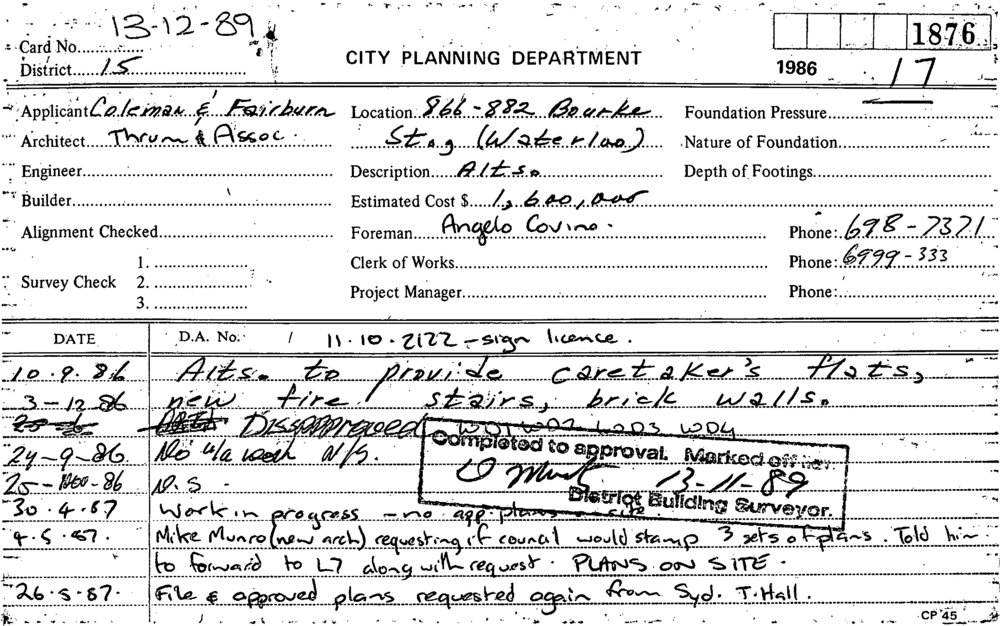 13-12-89
1876
Card No.
CITY PLANNING DEPARTMENT
District 15
1986
17
Applicant Coleman & Fairburn Location 866-882 Bourke Foundation Pressure
Architect Thrum & Assoc. St., (Waterloo) Nature of Foundation
Engineer Description Alts. Depth of Footings
Builder Estimated Cost $ 1,600,000
Alignment Checked Foreman Angelo Covino. Phone: 698-7371
1. Clerk of Works Phone: 6999-333
Survey Check 2.
Project Manager Phone:
3.
DATE D.A. No. / 11.10.2122 - sign licence.
10.9.86 Alts. to provide caretaker's flats,
3-12-86 new fire stairs, brick walls.
Dissapproved WD1 WD2 WD3 WD4
Completed to approval. Marked off
24-9-86 No N/S.
13-11-89
25-Nov-86 N.S.
District Building Surveyor.
30.4.87 Work in progress - no app. plans on site
4.5.87. Mike Munro (new arch) requesting if council would stamp 3 sets of plans. Told him
to forward to L7 along with request. PLANS ON SITE.
26.5.87. File & approved plans requested again from Syd. T. Hall.
CP 45